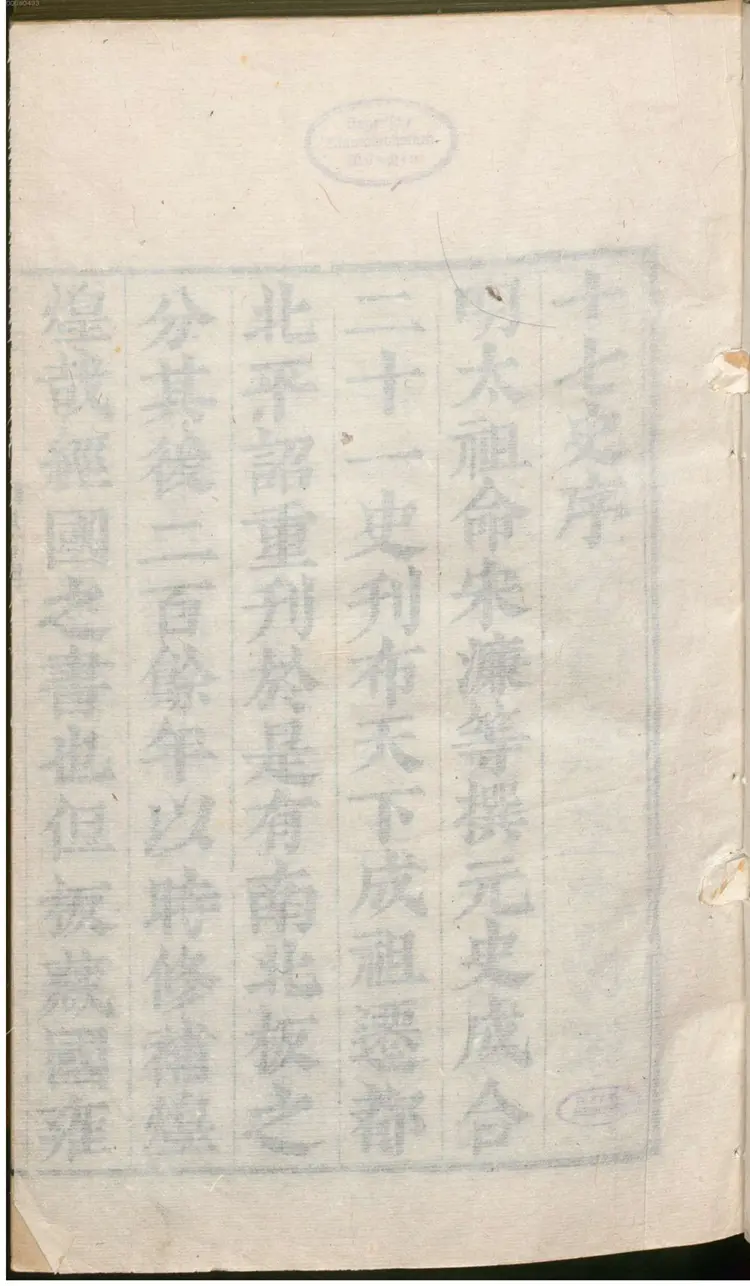 00080433
十七史序
明太祖命宋濂等撰元史成合
二十一史刋布天下成祖遷都
北平詔重刋於是有南北板之
分其後二百餘年以時修補煌
煌哉經國之書也但板藏國雍